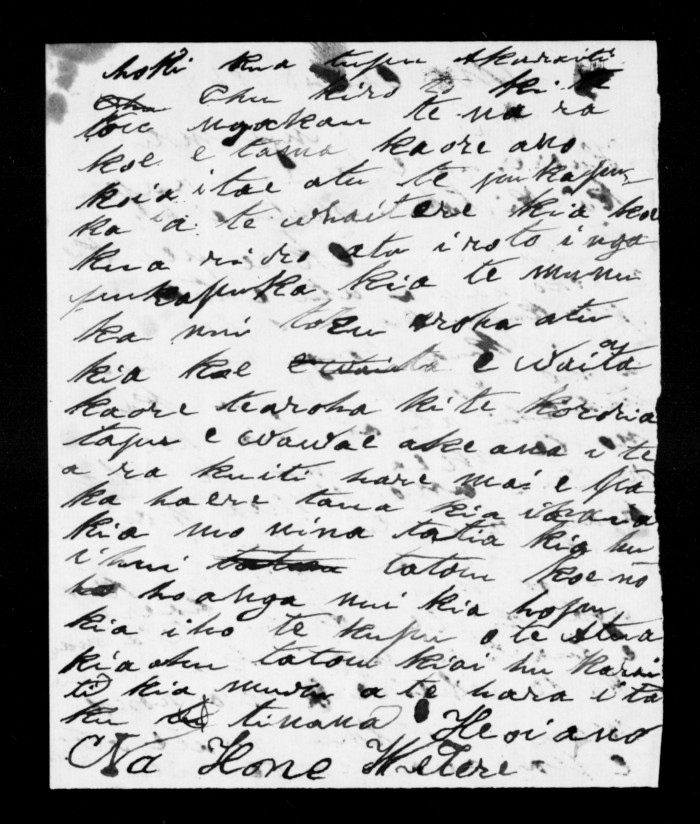 hoki kua tupu akaraiti
Ehu kiro ki te
tou ngakau te na ra
koe e tama kaore ano
koia itae atu te pukapu
ka a te whaitere kia koe
kua riro atu iroto i nga
pukapuka kia te munu
ka nui toku aroha atu
kia koe e waita e Waita
kaore tearoha kite kororia
tapu e wawae ake ana i te
a ra kuiti hare mai e pa
ka haere taua kia
kia mo nina tatia kia hu
ihui tatou tatou koe no
ho hoanga nui kia hopu
kia iho te kupu o te Atua
kia ahu tatou kiai hu karai
ti kia muru a te hara i ta
ku tinana Heoi ano
Na Hone Wetere